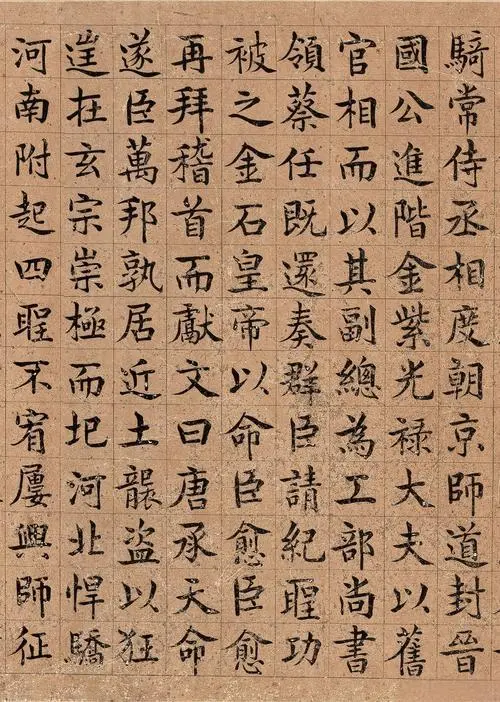 騎常侍丞相度朝京師道封晉
國公進階金紫光禄大夫以舊
官相而以其副總為工部尚書
領蔡任既還奏群臣請紀聖功
被之金石皇帝以命臣愈臣愈
再拜稽首而獻文曰唐承天命
遂臣萬邦孰居近土襲盗以狂
往在玄宗崇極而圮河北悍驕
河南附起四聖不宥屢興師征